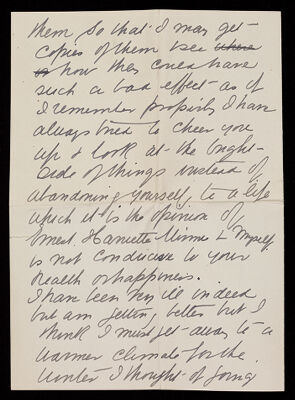 them so that I may get
copies of them & see where
is how they could have
such a bad effect - as if
I remember properly I have
always tried to cheer you
up & look at the bright
side of things instead of
abandoning yourself to a life
which it is the opinion of
Harriette Minnie & myself
is not conducive to your
health or happiness.
I have been very ill indeed
but am getting better but I
think I must get away to a
warmer climate for the
winter I thought of going